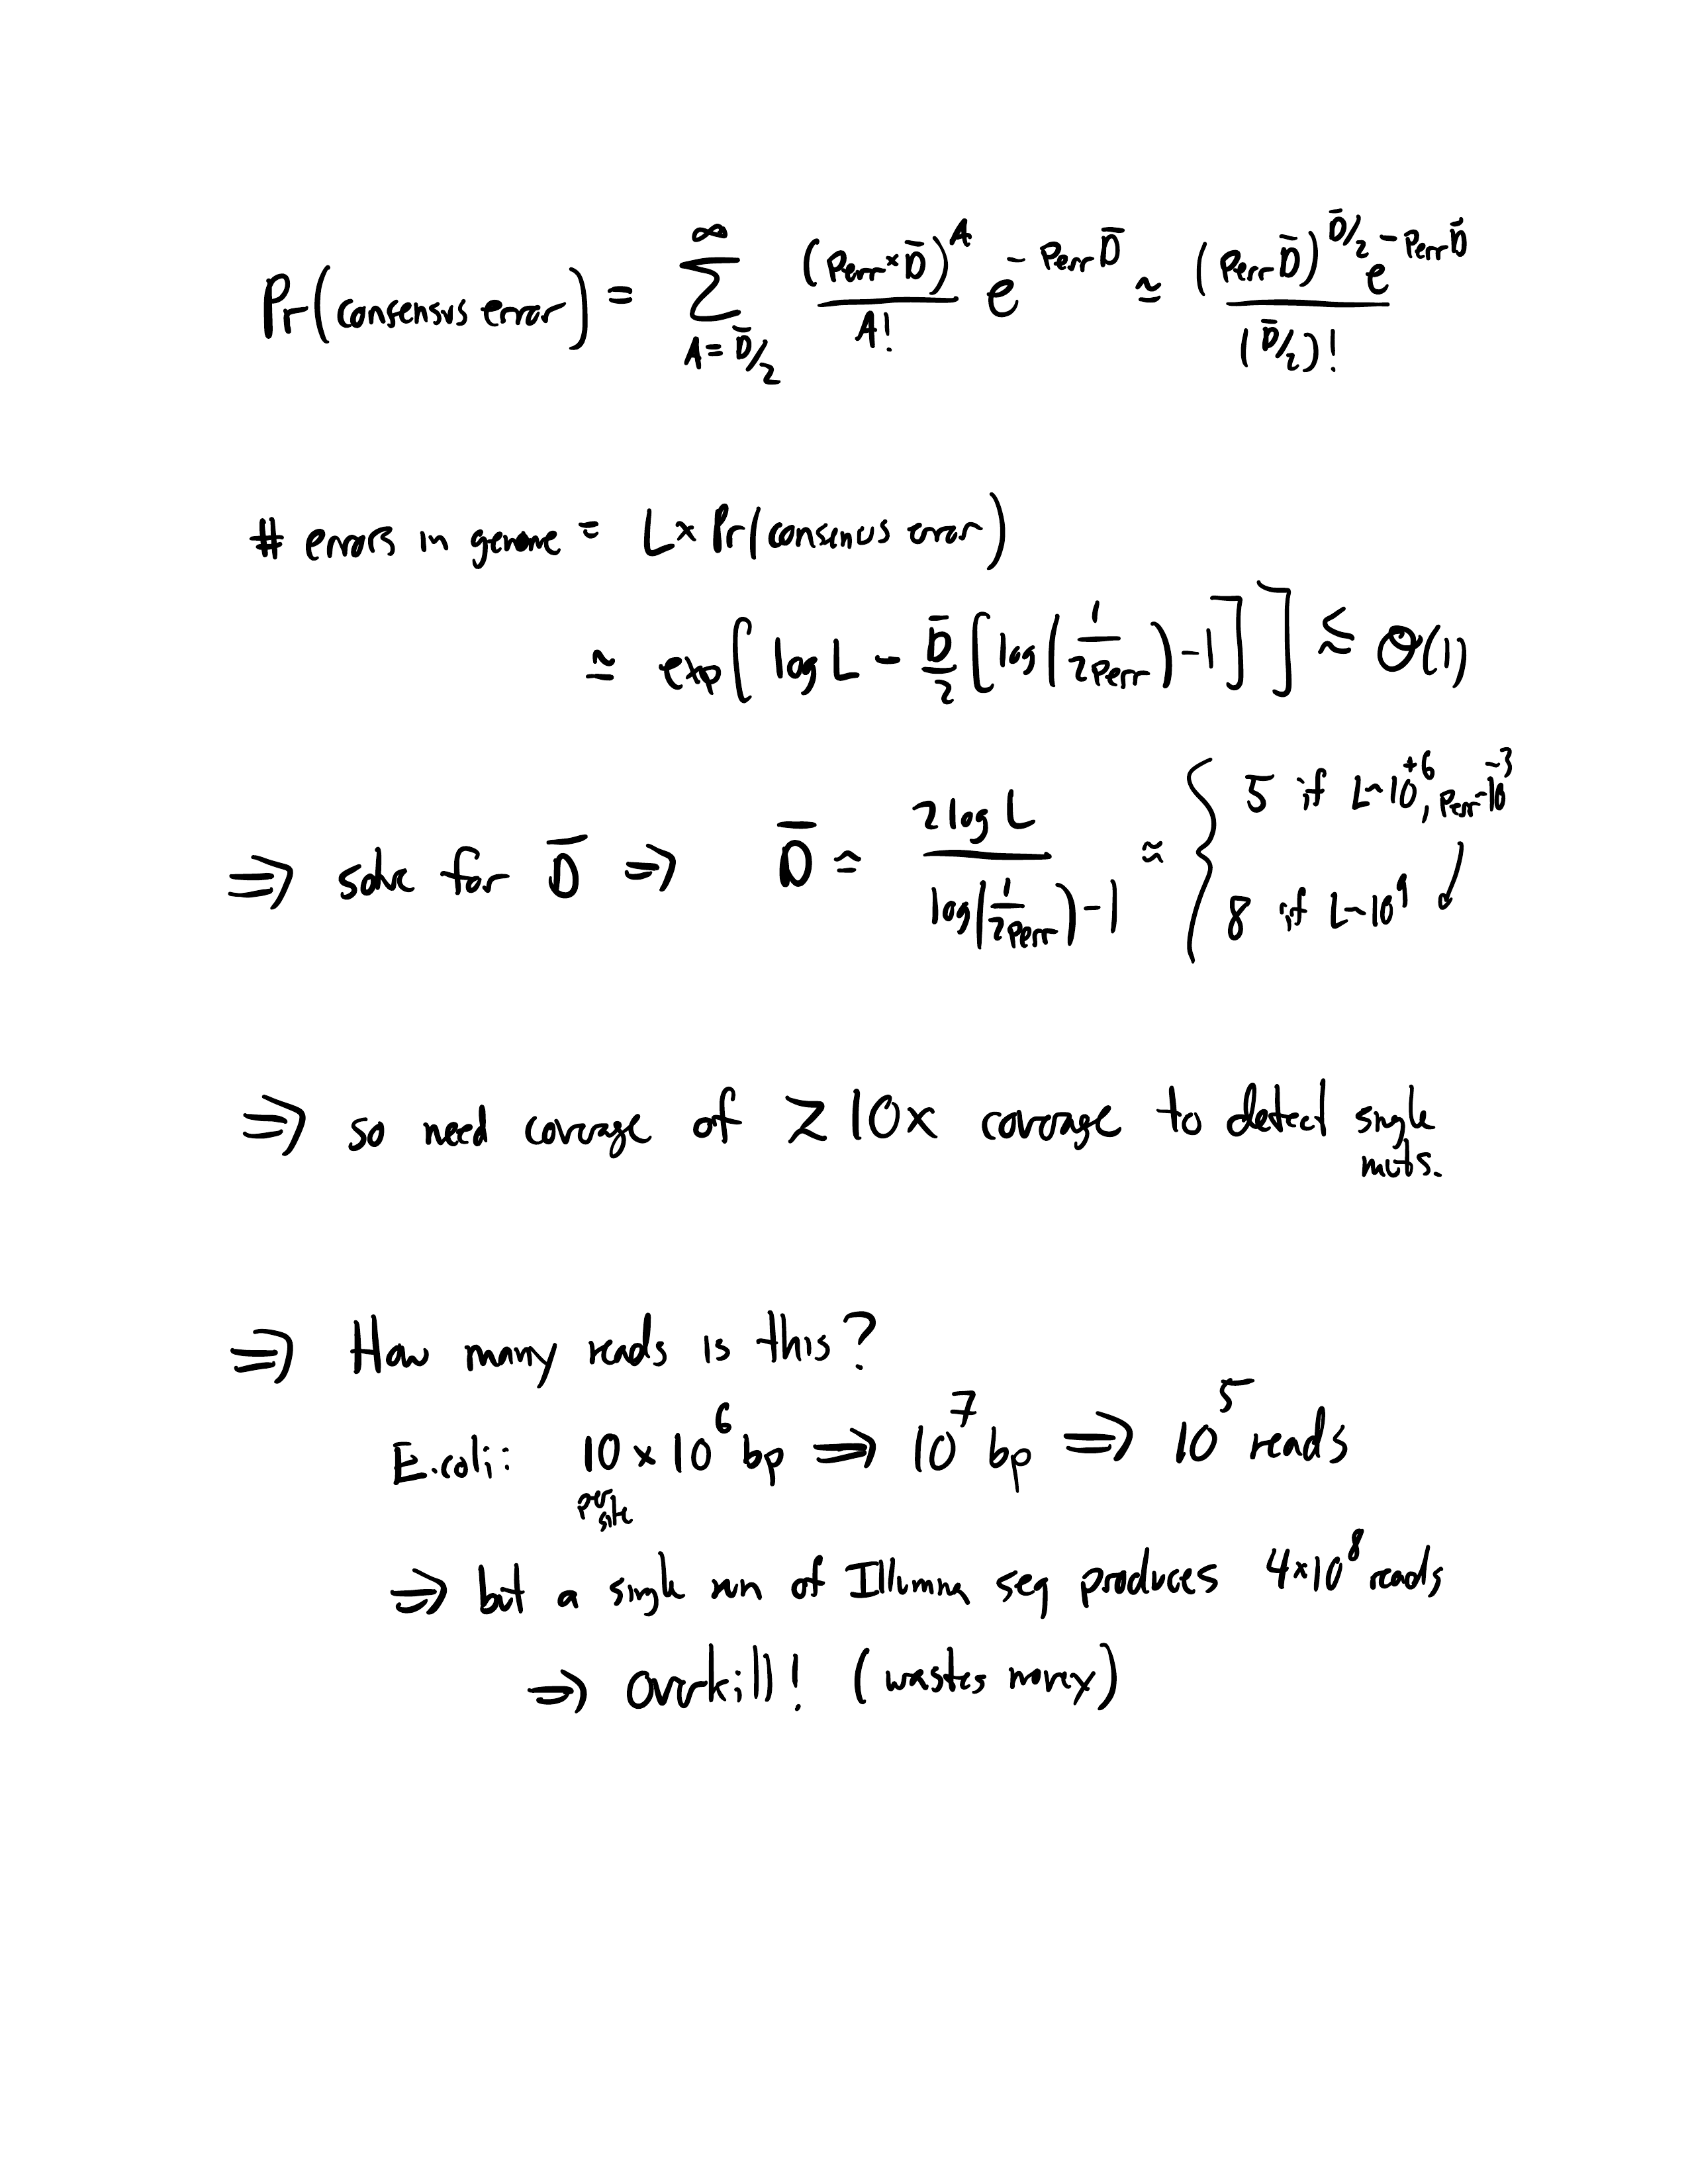 Pr(consensus error) = ∑_{A=D̄/2}^{∞} (Perr×D̄)^A / A! e^{-Perr D̄} ≃ (Perr D̄)^{D̄/2} e^{-Perr D̄} / (D̄/2)!
# errors in genome = L× Pr(consensus error)
≃ exp[ log L - D̄/2 [log(1/2Perr) -1] ] ≲ O(1)
⇒ solve for D̄ ⇒ D̄ ≃ 2 log L / log(1/2Perr) -1 ≈ { 5 if L~10^{+6}, Perr~10^{-3}
8 if L~10^9 ↓
⇒ so need coverage of ≥ 10x coverage to detect single
muts.
⇒ How many reads is this?
E.coli: 10 × 10^6 bp ⇒ 10^7 bp ⇒ 10^5 reads
per
site
⇒ but a single run of Illumina seq produces 4×10^8 reads
⇒ Overkill! (wastes money)